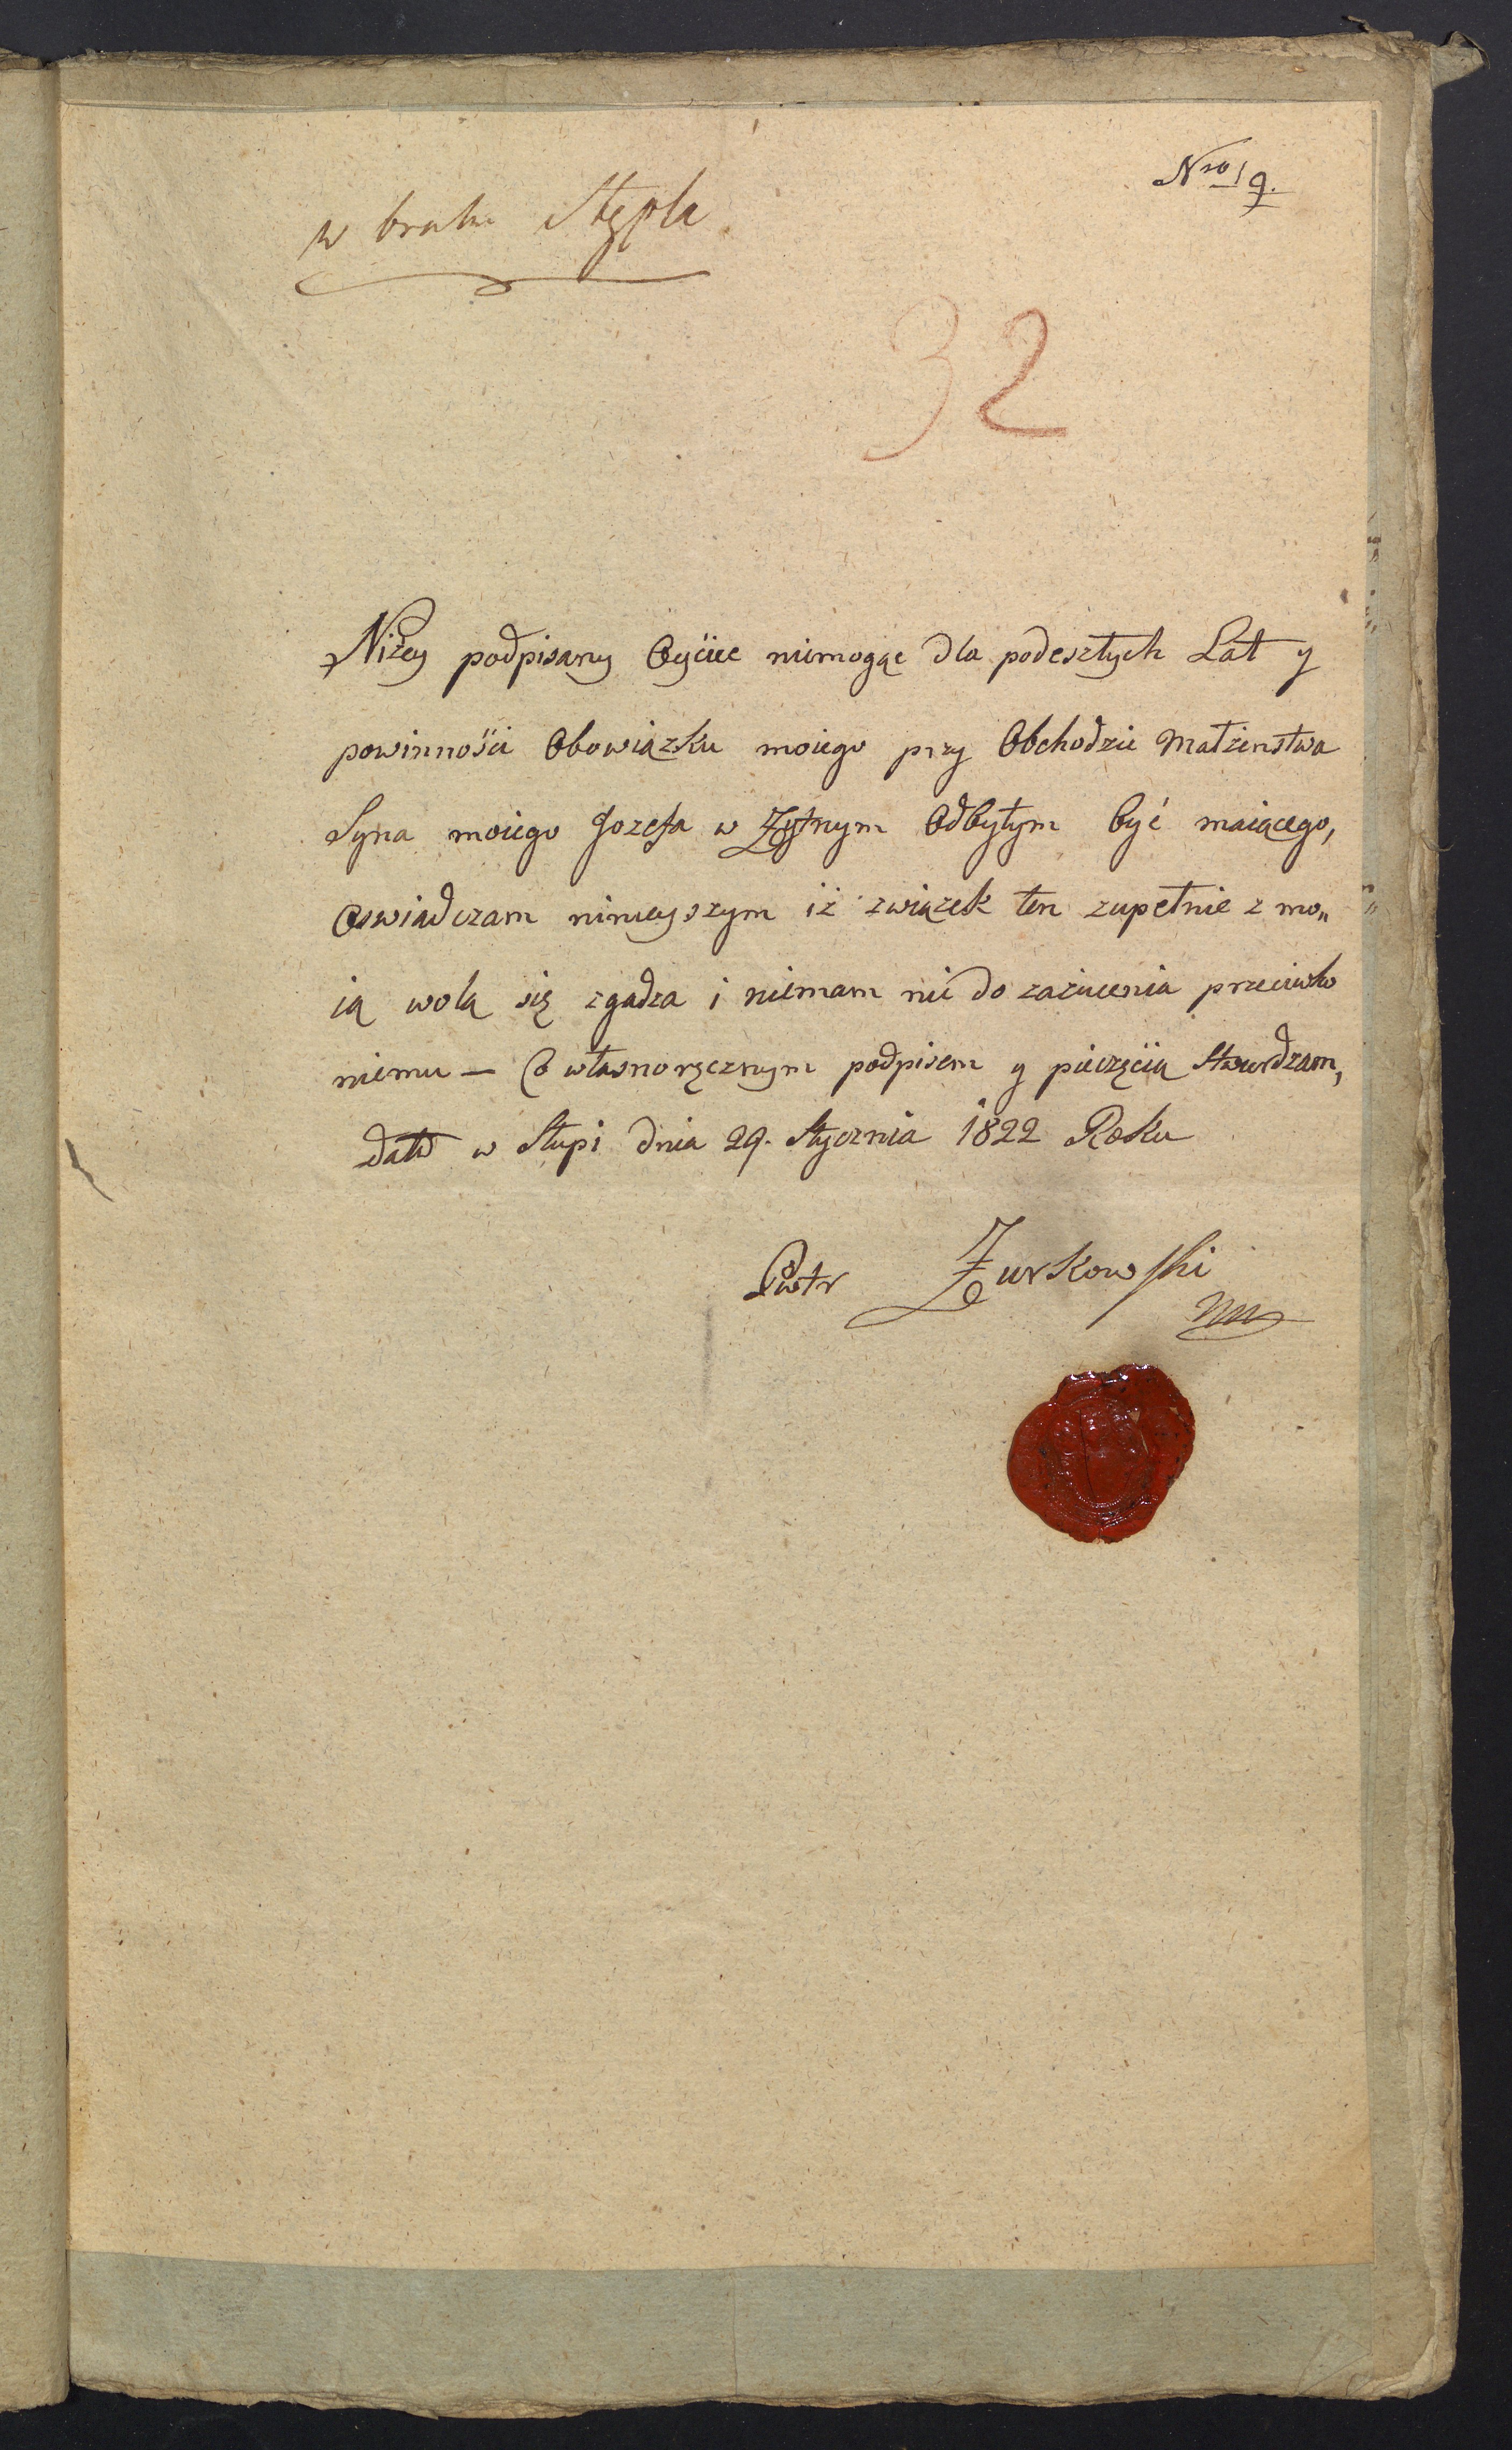 Nro 19.
w braku Stępla
32
Niżey podpisany Oyciec niemogąc dla podeszłych Lat y
powinności Obowiązku moiego przy Obchodzie Małżenstwa
Syna moiego Jozefa w Żytnym Odbytym być maiącego,
Oswiadczam ninieyszym iż związek ten zupełnie z mo„
ią wolą się zgadza i niemam nic do zażucenia przeciwko
niemu — Co własnoręcznym podpisem y pieczęcią Stwierdzam,
datt w Słupi dnia 29. Stycznia 1822 Roku
Piotr Żurkowski